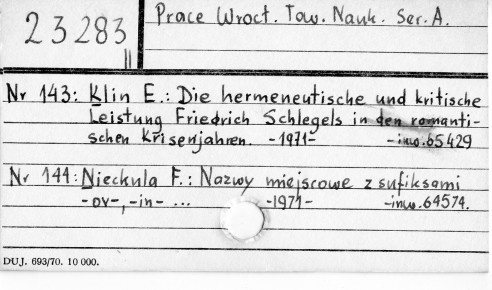 23283
II
Prace Wrocł. Tow. Nauk. Ser. A.
Nr 143: Klin E.: Die hermeneutische und kritische
Leistung Friedrich Schlegels in den romanti-
schen Krisenjahren. -1971- -inw.65429
Nr 144: Nieckula F.: Nazwy miejscowe z sufiksami
-ov-, -in- ... -1971- -inw.64574.
DUJ. 693/70. 10 000.